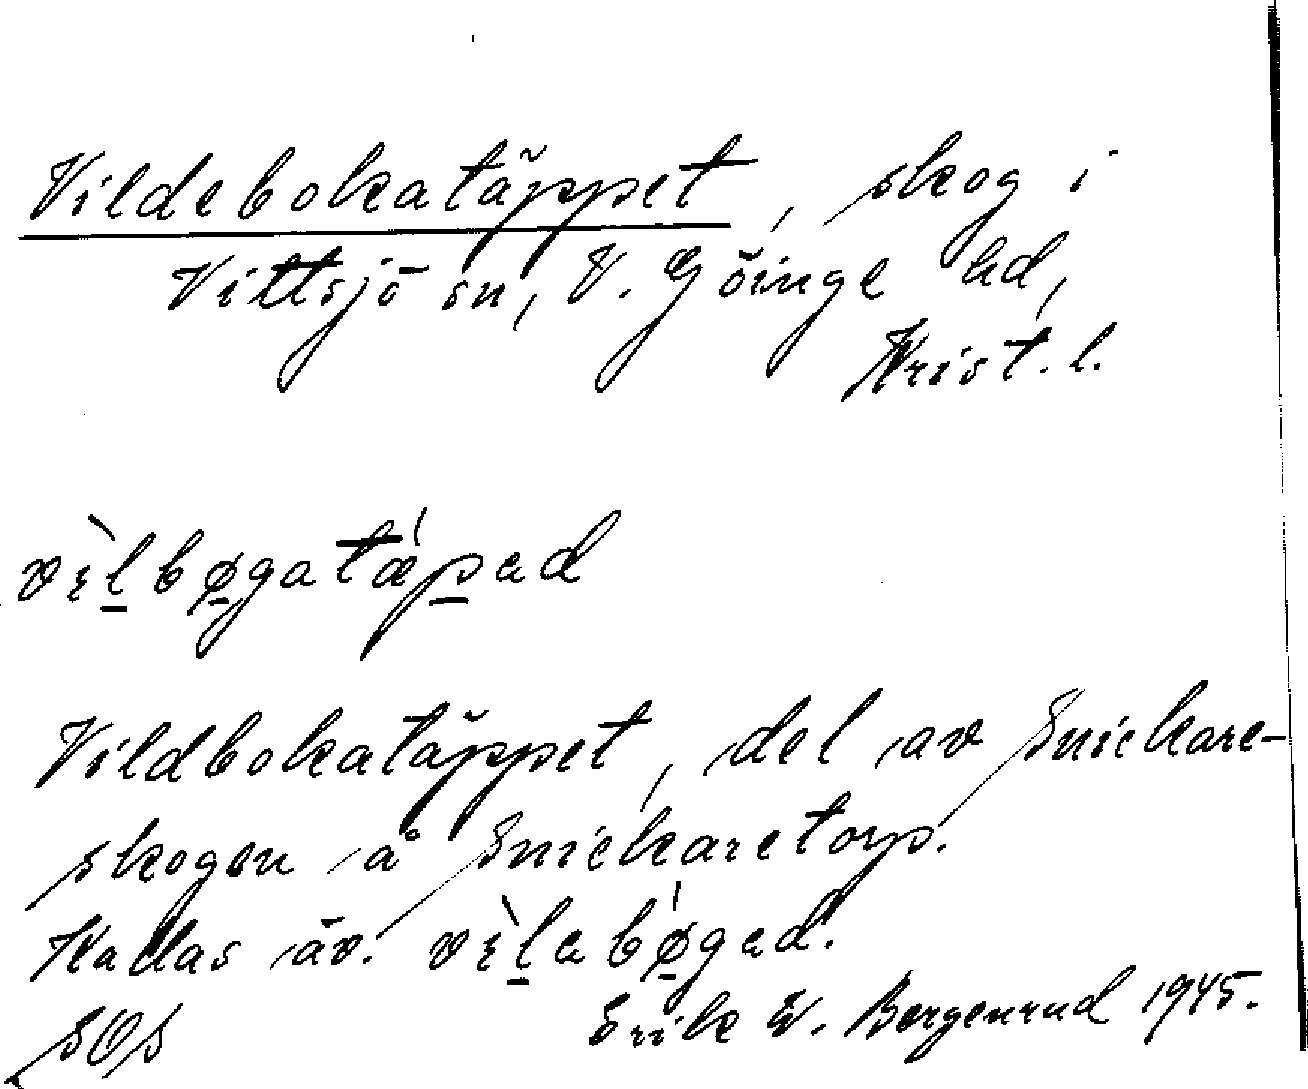 Vildebokatäppet, skog i
Vittsjö sn, V. Göinge hd,
Krist. l.
vìlbøgatǽpad
Vildbokatäppet, del av Snickare-
skogen å Snickaretorp.
Kallas äv. vìlabǿgad.
SOS Erik W. Bergenrud 1945.